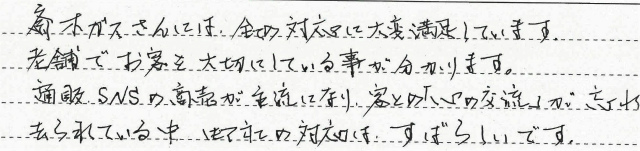 斎木ガスさんには、全ての対応に大変満足しています。
老舗でお客を大切にしている事が分かります。
通販、SNSの商売が主流になり、客との「心の交流」が忘れ
去られている中 の対応は、すばらしいです。